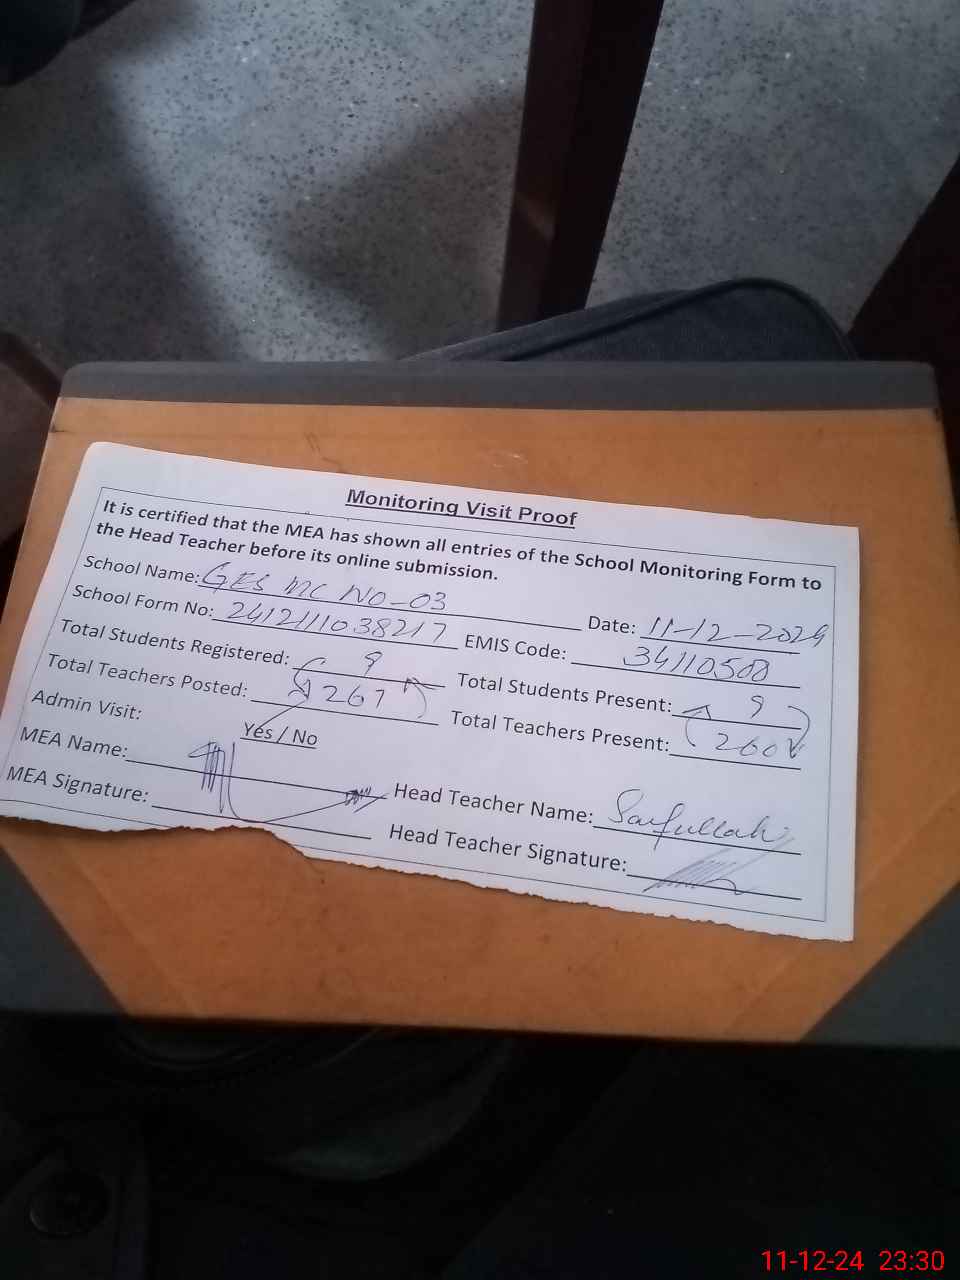 Monitoring Visit Proof
It is certified that the MEA has shown all entries of the School Monitoring Form to
the Head Teacher before its online submission.
School Name: GES MC NO-03 Date: 11-12-2024
School Form No: 2412111038217 EMIS Code: 34110508
Total Students Registered: 9 Total Students Present: 9
Total Teachers Posted: 267 Total Teachers Present: 260
Admin Visit: Yes / No
MEA Name: Head Teacher Name: Saifullah
MEA Signature: Head Teacher Signature:
11-12-24 23:30